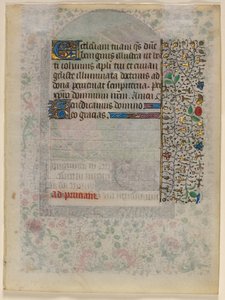 Ecclesiam tuam qs dne
benignus illustra ut bea
ti iohannis apli tui et euuan
geliste illuminata doctrinis ad
dona perueniat sempiterna. per
xpm dominum nrm. Amen.
Benedicamus domino
Deo gracias.